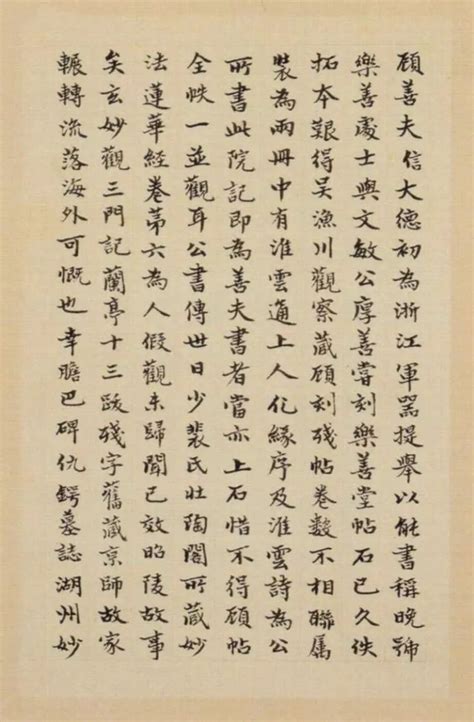 顧善夫信大德初為浙江軍器提舉以能書稱晚號
樂善處士與文敏公厚善嘗刻樂善堂帖石已久佚
拓本艱得吳漁川觀察藏顧刻殘帖卷數不相聯屬
裝為兩冊中有淮雲通上人化緣序及淮雲詩為公
所書此院記即為善夫書者當亦上石惜不得顧帖
全帙一並觀耳公書傳世日少裴氏壯陶閣所藏妙
法蓮華經卷第六為人假觀未歸聞已效昭陵故事
矣玄妙觀三門記蘭亭十三跋殘字舊藏京師故家
輾轉流落海外可慨也幸膽巴碑仇鍔墓誌湖州妙